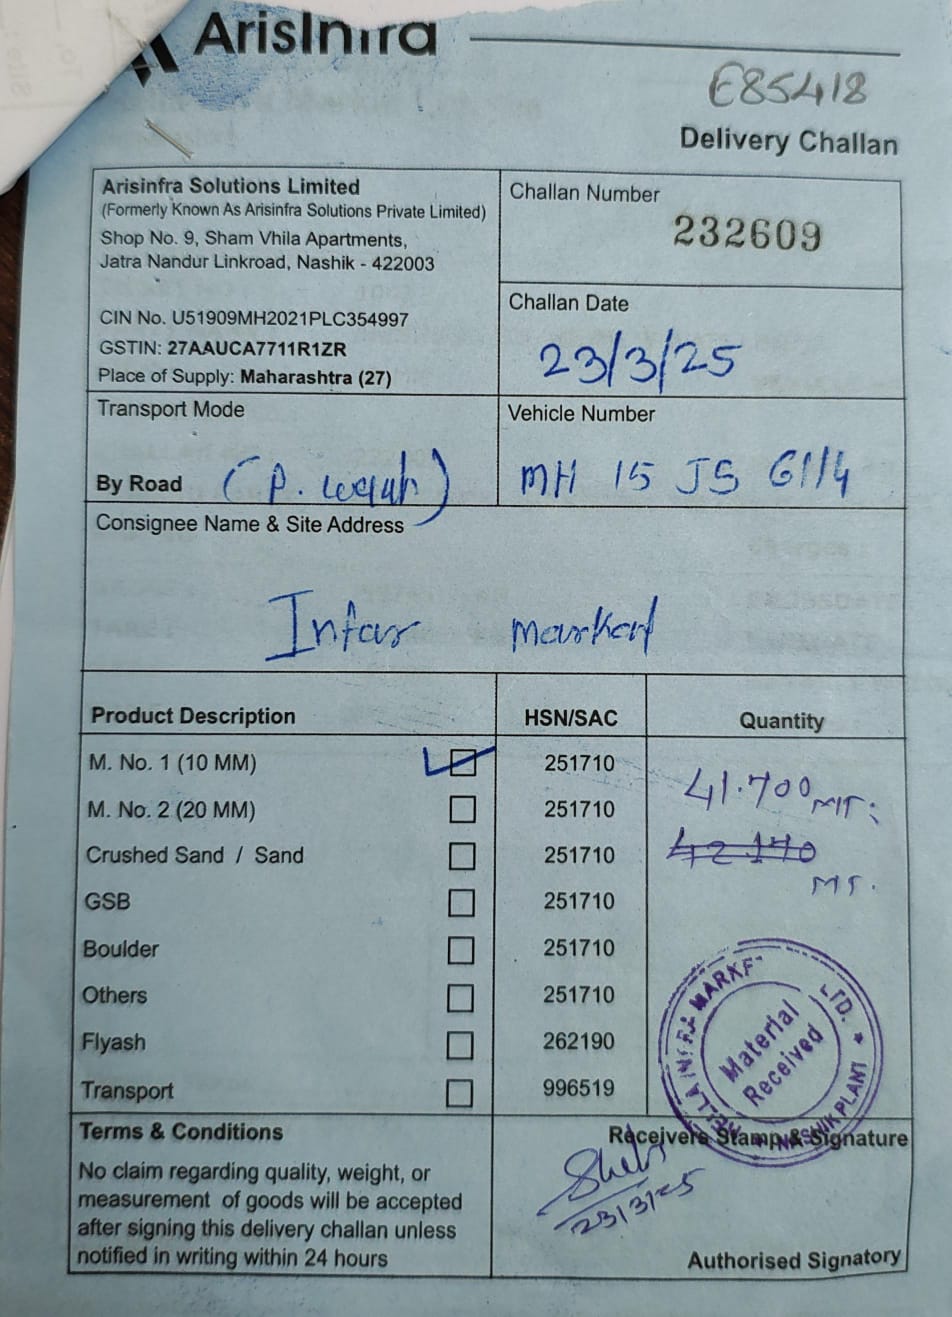 ArisInfra
E85418
Delivery Challan
Arisinfra Solutions Limited
(Formerly Known As Arisinfra Solutions Private Limited)
Shop No. 9, Sham Vhila Apartments,
Jatra Nandur Linkroad, Nashik - 422003
CIN No. U51909MH2021PLC354997
GSTIN: 27AAUCA7711R1ZR
Place of Supply: Maharashtra (27)
Challan Number
232609
Challan Date
23/3/25
Transport Mode
By Road (P.
Vehicle Number
MH 15 JS 6114
Consignee Name & Site Address
Infar market
Product Description HSN/SAC Quantity
M. No. 1 (10 MM) 251710 41.700 MT.
M. No. 2 (20 MM) 251710
Crushed Sand / Sand 251710 42.170
MT.
GSB 251710
Boulder 251710
Others 251710
Flyash 262190
Transport 996519
Material
Received
LTD. * NASHIK PLANT *
Terms & Conditions
No claim regarding quality, weight, or
measurement of goods will be accepted
after signing this delivery challan unless
notified in writing within 24 hours
Receivers Stamp & Signature
23/3/25
Authorised Signatory